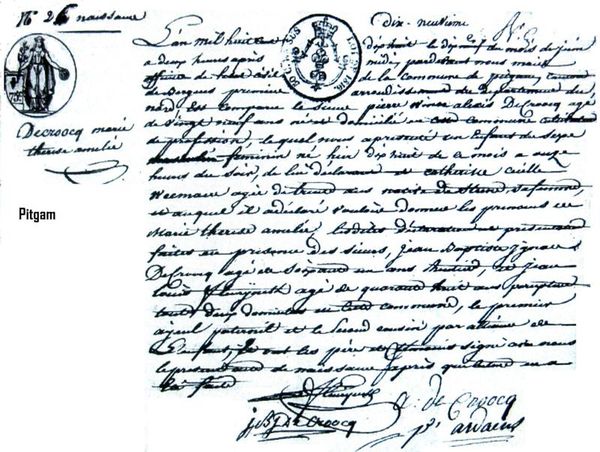 N° 26 naissance
Decroocq marie
therese amelie
Pitgam
dix-neuvieme
L'an mil huit cent dix huit le dix neuf du mois de juin
a deux heures après midi, pardevant nous maire
officier de l'état civil de la commune de pitgam, canton
de Bergues premier arrondissement du Département du
nord, Est Comparu le Sieur pierre alexis DeCroocq agé
de vingt neuf ans né et domicilié en cette commune
de profession, lequel nous a présenté un Enfant du Sexe
feminin né hier dix huit de ce mois a onze
heures du Soir, de lui déclarant et catherine cecille
Weemaere agée de trente ans native de Steene, Sa femme,
et auquel il a déclaré vouloir donner les prenoms de
Marie therese amelie, lesdites déclaration et présentation
faites en présence des sieurs, jean Baptiste Ignace
DeCroocq agé de Soixante un ans, et jean
Louis agé de quarante huit ans
tous deux domiciliés en cette commune, le premier
ayeul paternel et le Second cousin par alliance de
L'enfant, et ont les père et témoins signé avec nous
le présent acte de naissance après que lecture en a
été faite
p. de Croocq
j. B. j. de Croocq